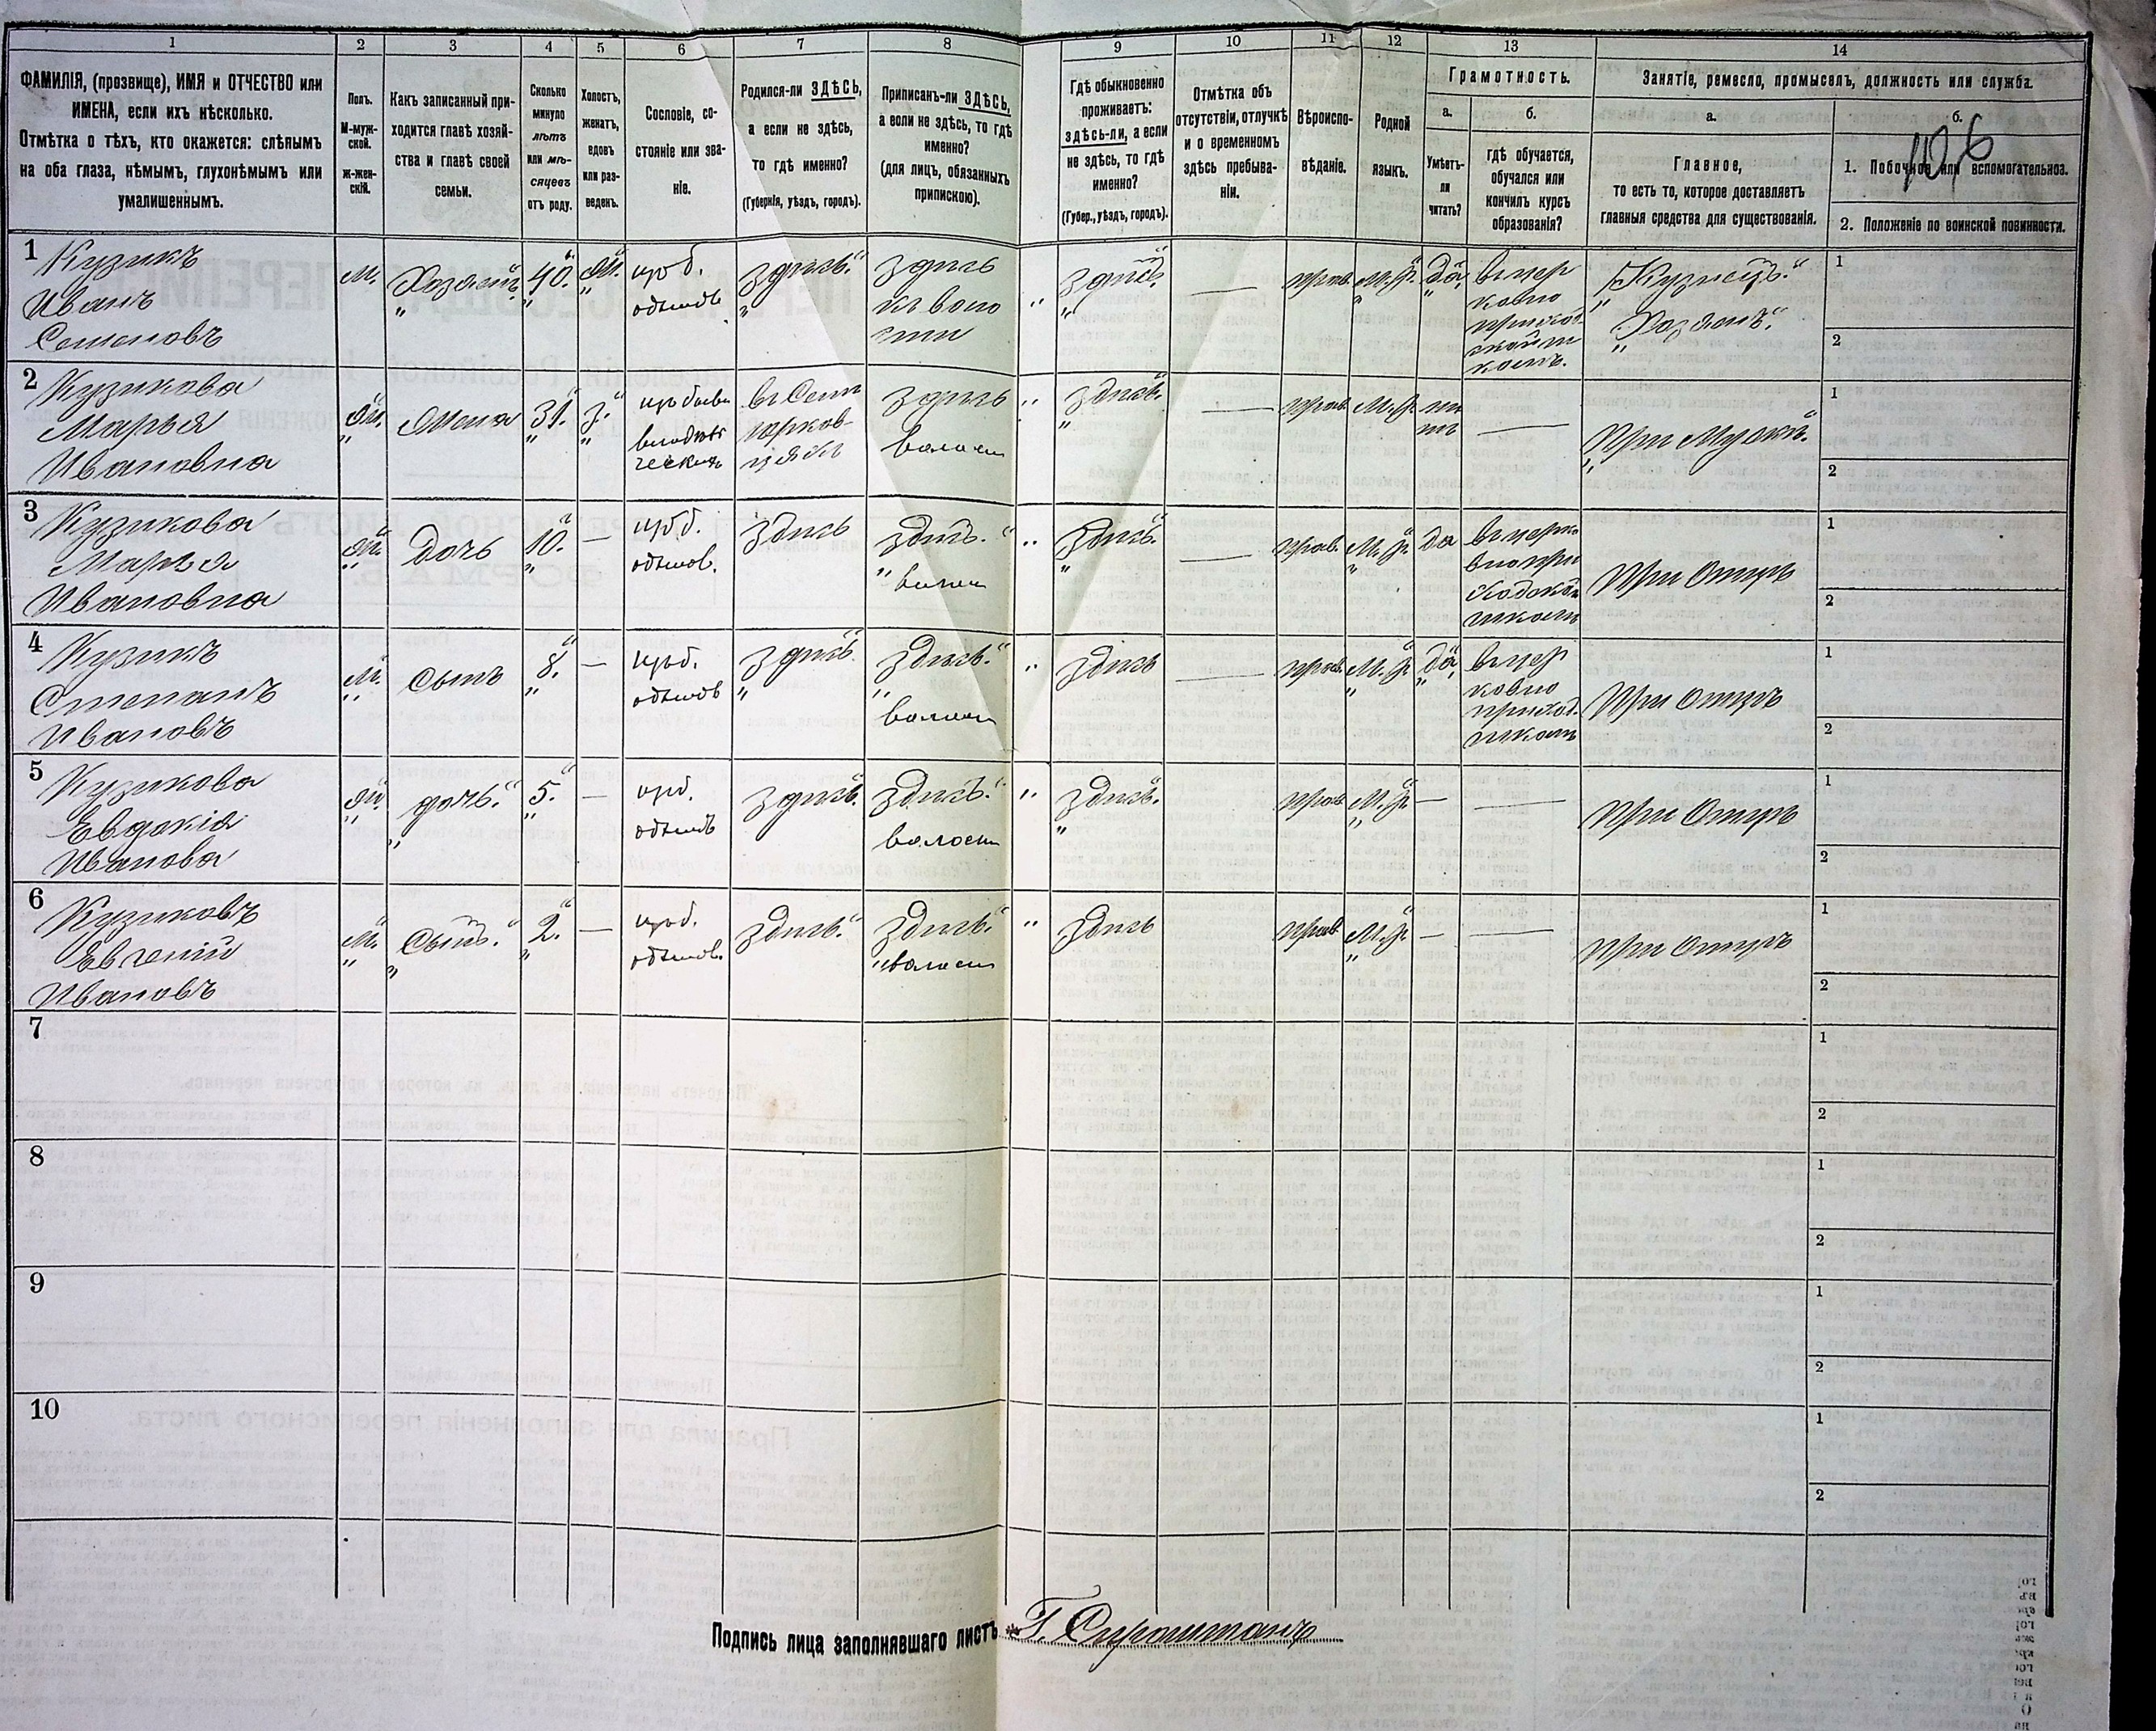 1 2 3 4 5 6 7 8 9 10 11 12 13 14
ФАМИЛІЯ, (прозвище), ИМЯ и ОТЧЕСТВО или
ИМЕНА, если ихъ нѣсколько.
Отмѣтка о тѣхъ, кто окажется: слѣпымъ
на оба глаза, нѣмымъ, глухонѣмымъ или
умалишеннымъ.
Полъ.
М-муж-
ской.
ж-жен-
скій.
Какъ записанный при-
ходится главѣ хозяй-
ства и главѣ своей
семьи.
Сколько
минуло
лѣтъ
или мѣ-
сяцевъ
отъ роду.
Холостъ,
женатъ,
вдовъ
или раз-
веденъ.
Сословіе, со-
стояніе или зва-
ніе.
Родился-ли ЗДѢСЬ,
а если не здѣсь,
то гдѣ именно?
(Губернія, уѣздъ, городъ).
Приписанъ-ли ЗДѢСЬ,
а если не здѣсь, то гдѣ
именно?
(для лицъ, обязанныхъ
припискою).
Гдѣ обыкновенно
проживаетъ:
здѣсь-ли, а если
не здѣсь, то гдѣ
именно?
(Губер., уѣздъ, городъ).
Отмѣтка объ
отсутствіи, отлучкѣ
и о временномъ
здѣсь пребыва-
ніи.
Вѣроиспо-
вѣданіе.
Родной
языкъ.
Грамотность.
а.
Умѣетъ-
ли
читать?
б.
Гдѣ обучается,
обучался или
кончилъ курсъ
образованія?
Занятіе, ремесло, промыселъ, должность или служба.
а.
Главное,
то есть то, которое доставляетъ
главныя средства для существованія.
б.
106
1. Побочное или вспомогательное.
2. Положеніе по воинской повинности.
1
Кузикъ
Иванъ
Семеновъ
м.
Хозяинъ
40.
ж.
здѣсь.
здѣсь
здѣсь.
—
прав.
М.р.
да
въ цер
ковно
приход
ской ш
колѣ.
Кузнецъ.
Хозяинъ.
1
2
2
Кузикова
Марья
Ивановна
ж.
Жена
31.
з.
здѣсь
волости
здѣсь.
—
прав.
М.р.
—
При Мужѣ.
1
2
3
Кузикова
Марья
Ивановна
ж.
дочь
10.
—
здѣсь
здѣсь.
здѣсь.
—
прав.
М.р.
да
въ церко
вно при
ходской
школѣ
При Отцѣ
1
2
4
Кузикъ
Степанъ
Ивановъ
м.
сынъ
8.
—
здѣсь.
здѣсь.
волости
здѣсь
—
прав.
М.р.
да
въ цер
ковно
приход.
школѣ
При Отцѣ
1
2
5
Кузикова
Евдокія
Иванова
ж.
дочь.
5.
—
здѣсь.
здѣсь.
волости
здѣсь.
прав.
М.р.
—
—
При Отцѣ
1
2
6
Кузиковъ
Евгеній
Ивановъ
м.
сынъ.
2.
—
здѣсь.
здѣсь.
волости
здѣсь
прав.
М.р.
—
—
При Отцѣ
1
2
7
1
2
8
1
2
9
1
2
10
1
2
Подпись лица заполнявшаго листъ